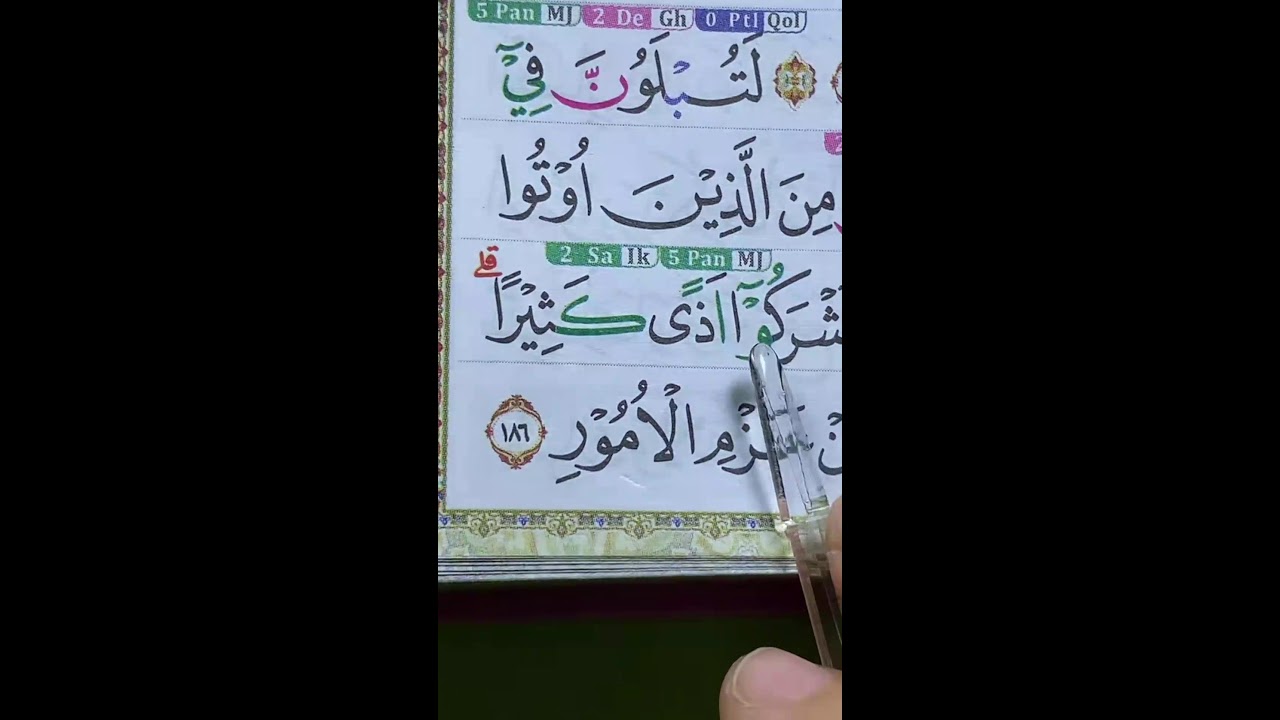 5 Pan MJ 2 De Gh 0 Ptl Qol
لَتُبْلَوُنَّ فِيْٓ
مِنَ الَّذِيْنَ اُوْتُوا
2 Sa Ik 5 Pan MJ
شْرَكُوْٓا اَذًى كَثِيْرًاۗ
عَزْمِ الْاُمُوْرِ ١٨٦